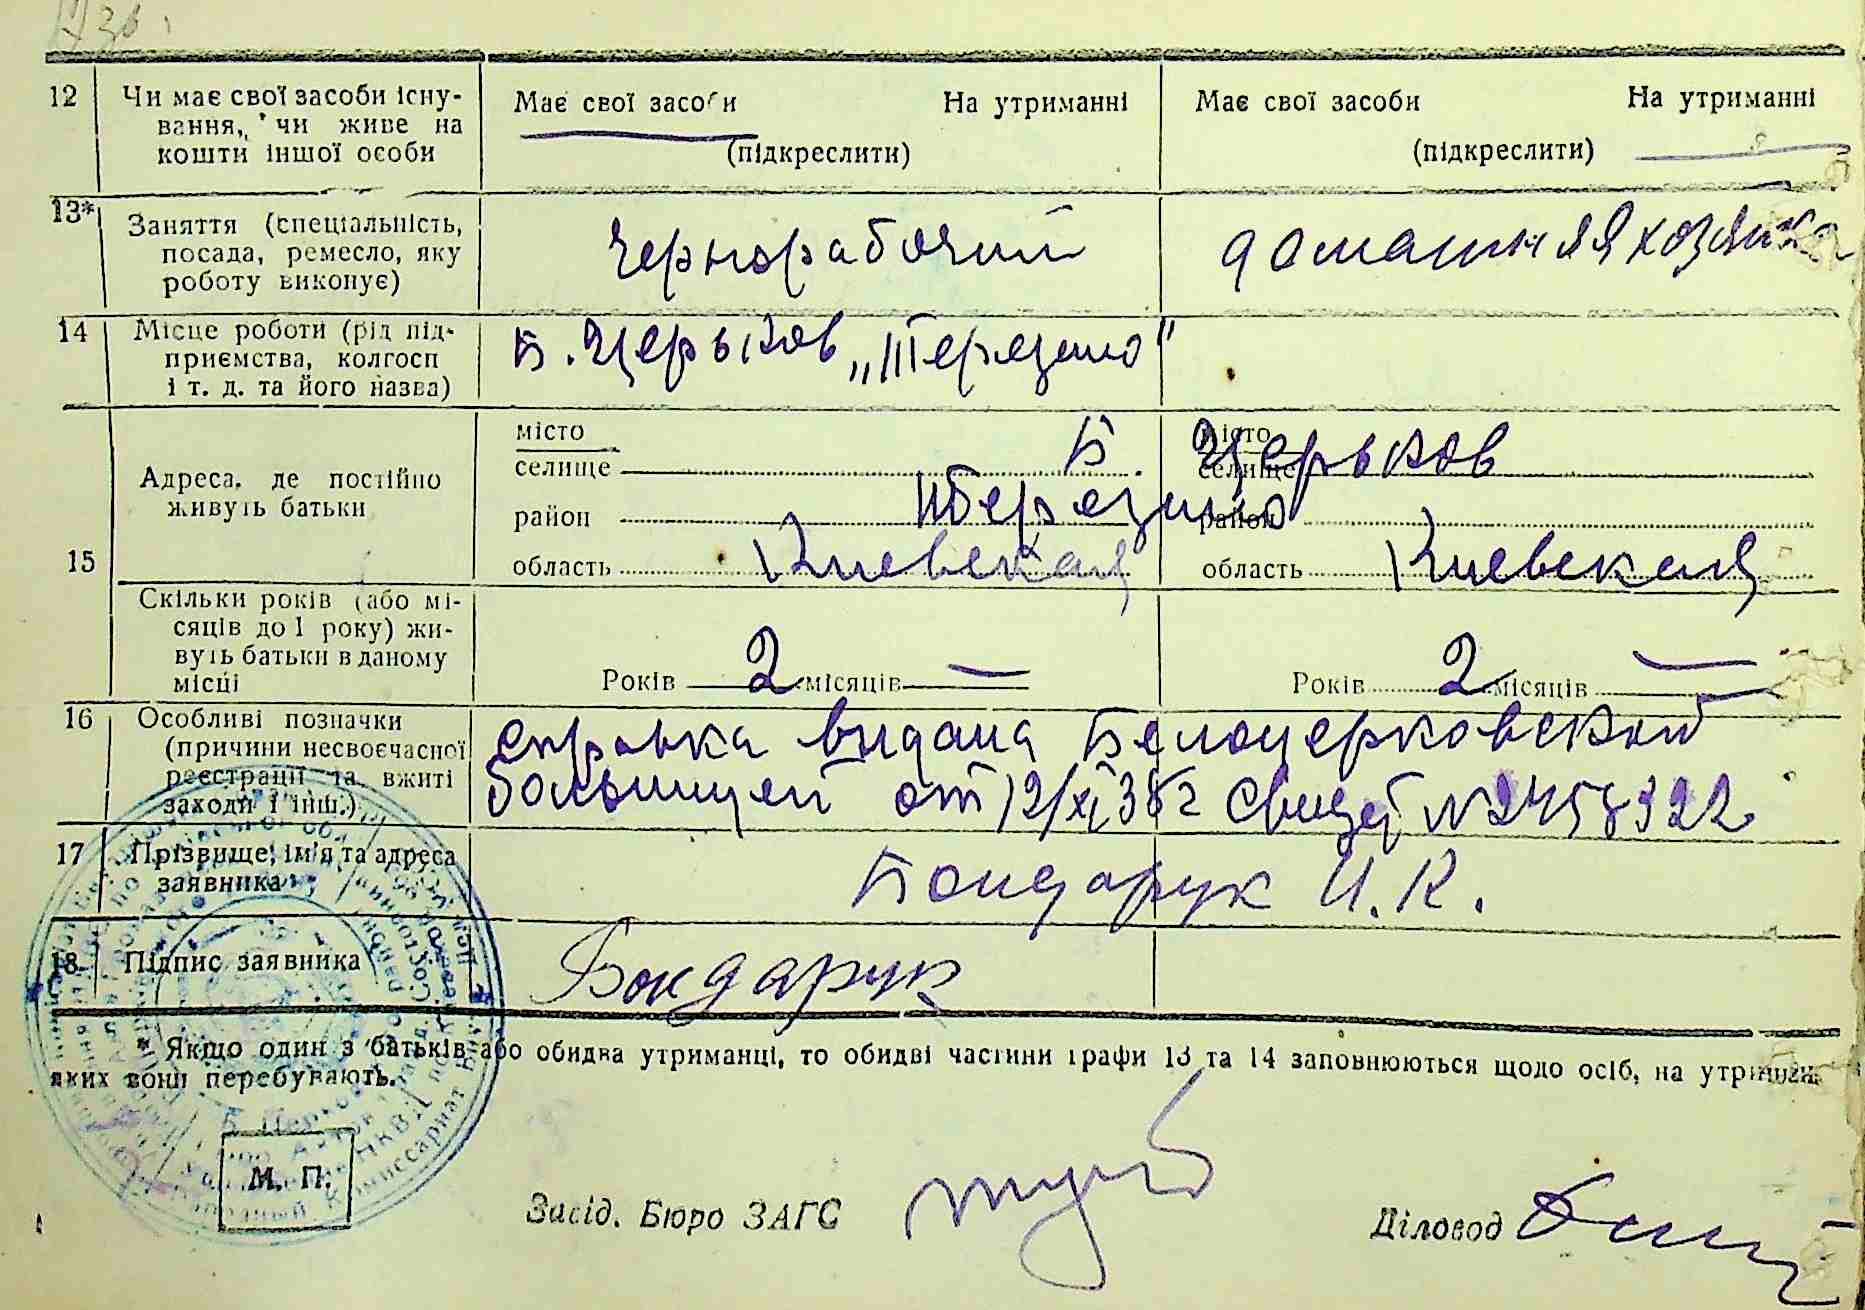 12 Чи має свої засоби існу-
вання, чи живе на
кошти іншої особи
Має свої засоби На утриманні
(підкреслити)
Має свої засоби На утриманні
(підкреслити)
13* Заняття (спеціальність,
посада, ремесло, яку
роботу виконує)
Чернорабочий
домашняя хозяйка
14 Місце роботи (рід під-
приємства, колгосп
і т. д. та його назва)
Б. Церьков „Терезино"
15
Адреса, де постійно
живуть батьки
місто
селище
район
область Киевская
Б. Церьков
Терезино
місто
селище
район
область Киевская
Скільки років (або мі-
сяців до 1 року) жи-
вуть батьки в даному
місці
Років 2 місяців —
Років 2 місяців —
16 Особливі позначки
(причини несвоєчасної
реєстрації та вжиті
заходи і інш.)
справка выдана Белоцерковской
больницей от 12/XI 38г Свидет №2458322
17 Прізвище, ім'я та адреса
заявника
Бондарук И. К.
18 Підпис заявника
Бондарук
* Якщо один з батьків або обидва утриманці, то обидві частини графи 13 та 14 заповнюються щодо осіб, на утриман.
яких вони перебувають.
М. П.
Завід. Бюро ЗАГС
Діловод